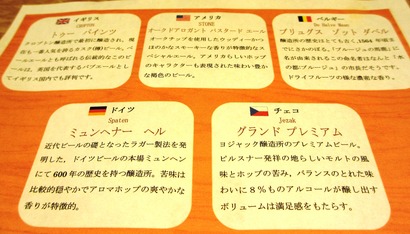 イギリス
CROPTON
トゥー パインツ
クロプトン醸造所で最初に醸造され、現在
も一番人気を誇るカスク(樽)ビール。ペ
ールエールとも呼ばれる伝統的なこのビ
ールは、英国を代表するパブエールとし
てイギリス国内でも評判です。
アメリカ
STONE
オークドアロガント バスタード エール
オークチップを使用したウッディーかつ
ほのかなスモーキーな香りが特徴的なス
ペシャルエール。アメリカらしいホップ
のキャラクターも表現された味わい豊か
な褐色のビール。
ベルギー
De Halve Maan
ブリュグス ゾット ダベル
醸造所の歴史はとても古く、1564 年頃まで
にさかのぼる。「ブルージュの
ドライフルーツの様な濃密な香り。
ドイツ
Spaten
ミュンヘナー ヘル
近代ビールの礎となったラガー製法を発
明した、ドイツビールの本場ミュンヘン
にて600年の歴史を持つ醸造所。苦味は
比較的穏やかでアロマホップの爽やかな
香りが特徴的。
チェコ
Jezak
グランド プレミアム
ヨジャック醸造所のプレミアムビール。
ピルスナー発祥の地らしいモルトの風
味とホップの苦み、バランスのとれた味
わいに8%ものアルコールが醸し出す
ボリュームは満足感をもたらす。